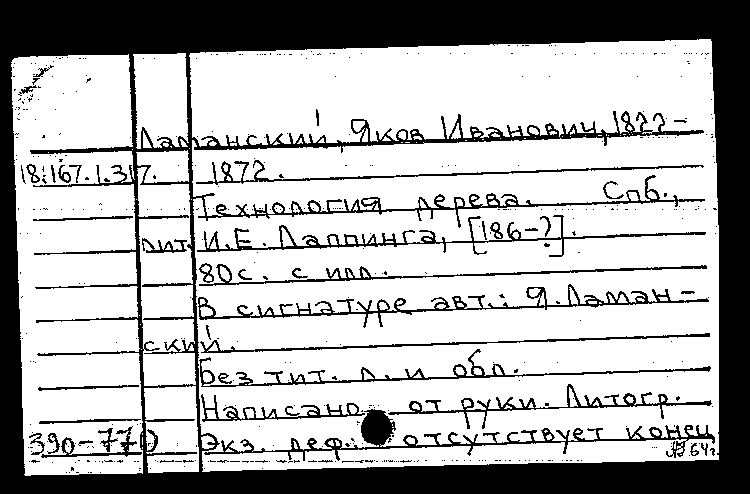 Ламанский, Яков Иванович, 1822-
18:167.1.317. 1872.
Технология дерева. Спб.,
лит. И.Е. Лаппинга, [186-?].
80с. с илл.
В сигнатуре авт.: Я. Ламан-
ский.
Без тит. л. и обл.
Написано от руки. Литогр.
390-770 Экз. деф.: отсутствует конец
64г.